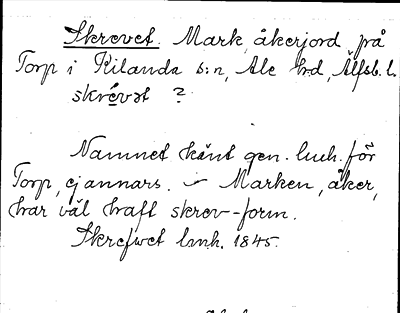 Skrevet. Mark, åkerjord på
Torp i Kilanda s:n, Ale hd, Älfsb. l.
skrévət ?
Namnet känt gen. lmh. för
Torp, ej annars. – Marken, åker,
har väl haft skrev-form.
Skrefwet lmh. 1845.